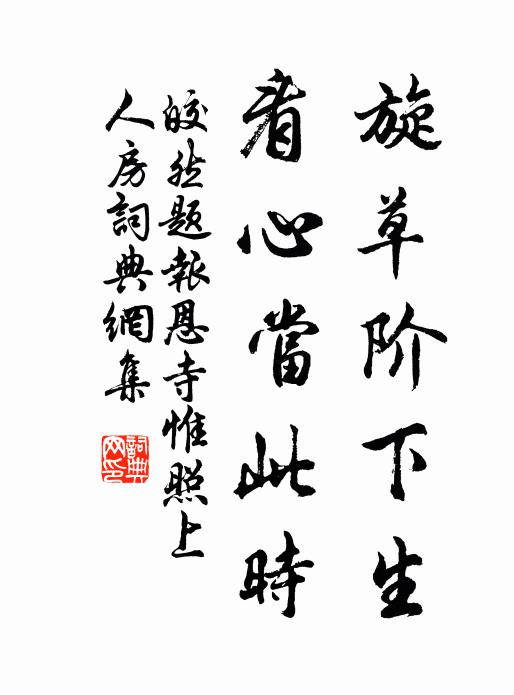 旋草阶下生
看心當此時
皎然题報恩寺惟照上
人房詞典網集
詞典网印